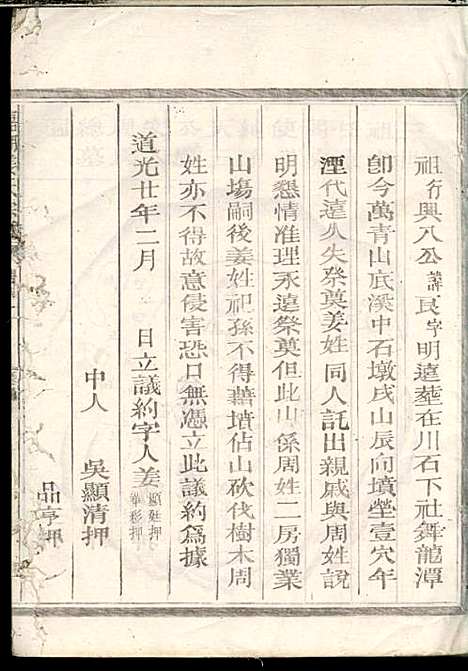 祖行興八公諱良字明遠塟在川石下社舞龍潭
卽今萬青山底溪中石墩戌山辰向墳塋壹穴年
湮代遠久失祭奠姜姓同人託出親戚與周姓說
明懇情准理永遠祭奠但此山係周姓二房獨業
山塲嗣後姜姓祀孫不得藉墳佔山砍伐樹木周
姓亦不得故意侵害恐口無憑立此議約爲據
道光廿年二月　日立議約字人姜顯姓押華彩押
中人　吳顯清押
品亨押